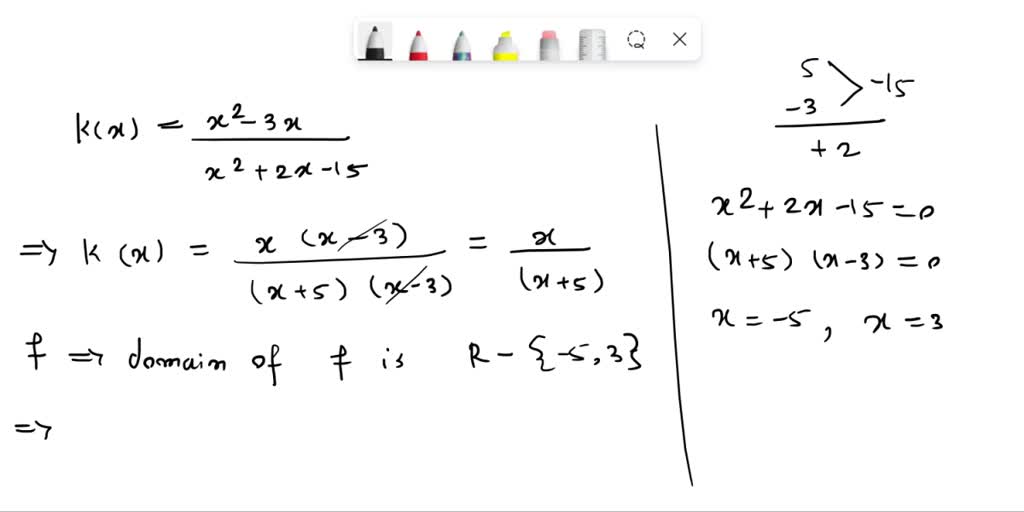 k(x) = x² - 3x / x² + 2x - 15
=> k (x) = x (x - 3) / (x + 5) (x - 3) = x / (x + 5)
f => domain of f is R - {-5, 3}
=>
5
-3 > -15
+ 2
x² + 2x - 15 = 0
(x + 5) (x - 3) = 0
x = -5, x = 3